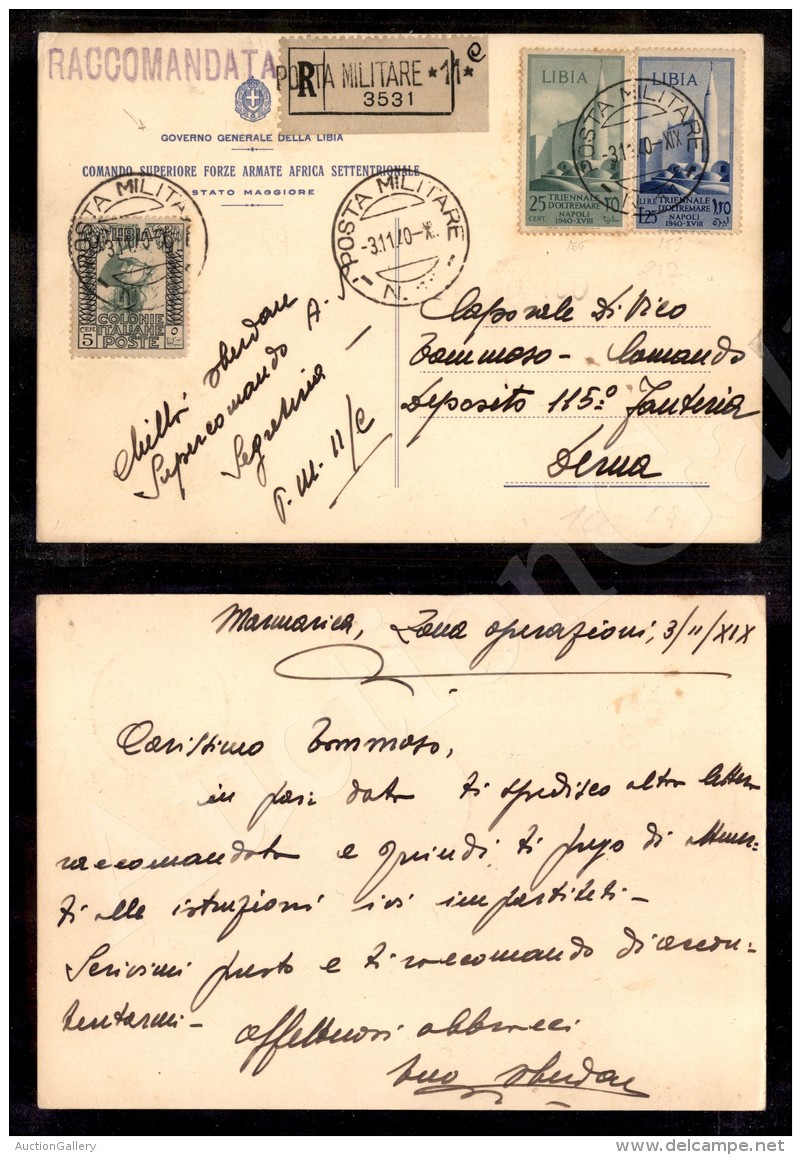 RACCOMANDATA
R POSTA MILITARE *11* C
3531
GOVERNO GENERALE DELLA LIBIA
COMANDO SUPERIORE FORZE ARMATE AFRICA SETTENTRIONALE
STATO MAGGIORE
LIBIA
25
CENT.
TRIENNALE
D'OLTREMARE
NAPOLI
1940-XVIII
LIBIA
LIRE
1,25
TRIENNALE
D'OLTREMARE
NAPOLI
1940-XVIII
POSTA MILITARE
-3.11.40-XIX
POSTA MILITARE
-3.11.40-X.
N.
POSTA MILITA
LIBIA
COLONIE
ITALIANE
POSTE
CENT 5
Oberdan
Supercomando A.S.
Segreteria -
P.M. 11/C
Caporale Di Vico
Tommaso - Comando
Deposito 115º Fanteria
Derna
Marmarica, Zona operazioni, 3/11/XIX
Carissimo Tommaso,
in pari data ti spedisco altra lettera
raccomandata e quindi ti prego di attener-
ti alle istruzioni ivi impartiteti -
Scrivimi presto e ti raccomando di accon-
tentarmi -
Affettuosi abbracci
tuo Oberdan
AuctionGallery
delcampe.net